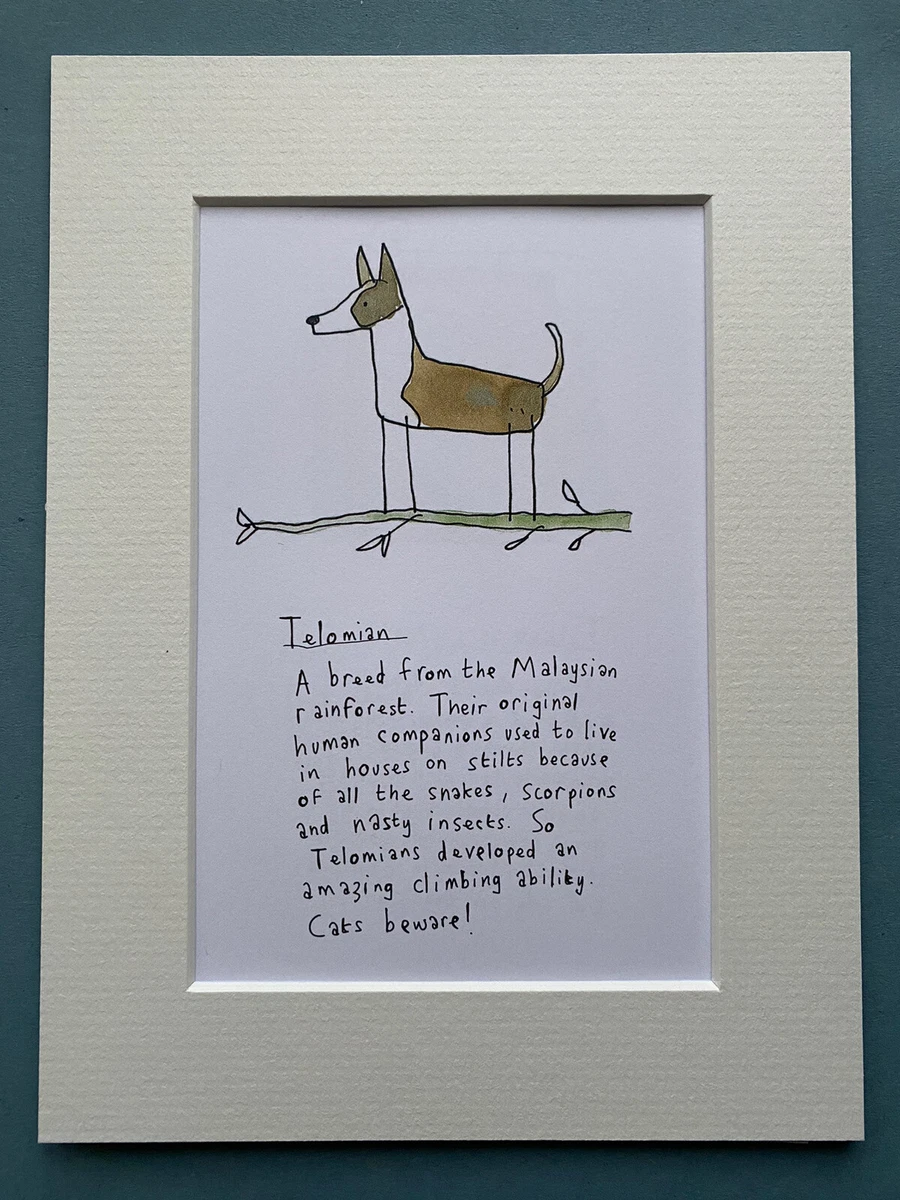 Telomian
A breed from the Malaysian
rainforest. Their original
human companions used to live
in houses on stilts because
of all the snakes, scorpions
and nasty insects. So
Telomians developed an
amazing climbing ability.
Cats beware!